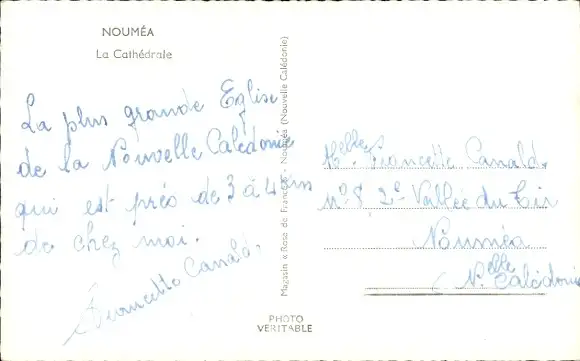 NOUMÉA
La Cathédrale
La plus grande Eglise
de la Nouvelle Calédonie
qui est près de 3 à 4 km
de chez moi.
Francette Canald.
Magasin « Rose de France » - Nouméa (Nouvelle Calédonie)
PHOTO
VERITABLE
Melle. Francette Canald.
N° 8, 2e Vallée du Tir
Nouméa
Nelle Calédonie